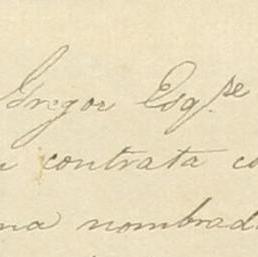 Gregor Esqre
contrata co
na nombrad